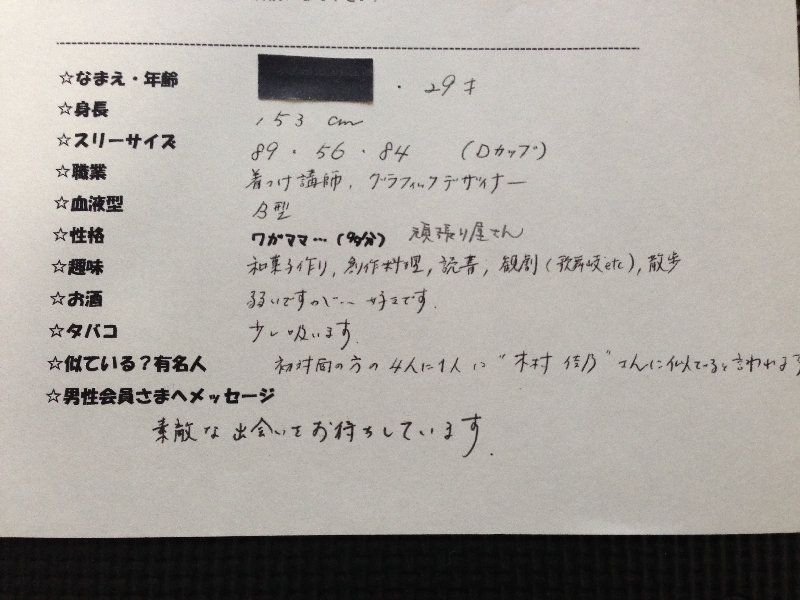 ☆なまえ・年齢 ・ 29才
☆身長 153 cm
☆スリーサイズ 89 ・ 56 ・ 84 (Dカップ)
☆職業 着つけ講師、グラフィックデザイナー
☆血液型 B型
☆性格 ワガママ…(多分) 頑張り屋さん
☆趣味 和菓子作り, 創作料理, 読書, 観劇(歌舞岐etc), 散歩
☆お酒 弱いですが… 好きです.
☆タバコ 少し吸います.
☆似ている?有名人 初対面の方の4人に1人に"木村 佳乃"さんに似てると言われます
☆男性会員さまへメッセージ
素敵な出会いをお待ちしています.